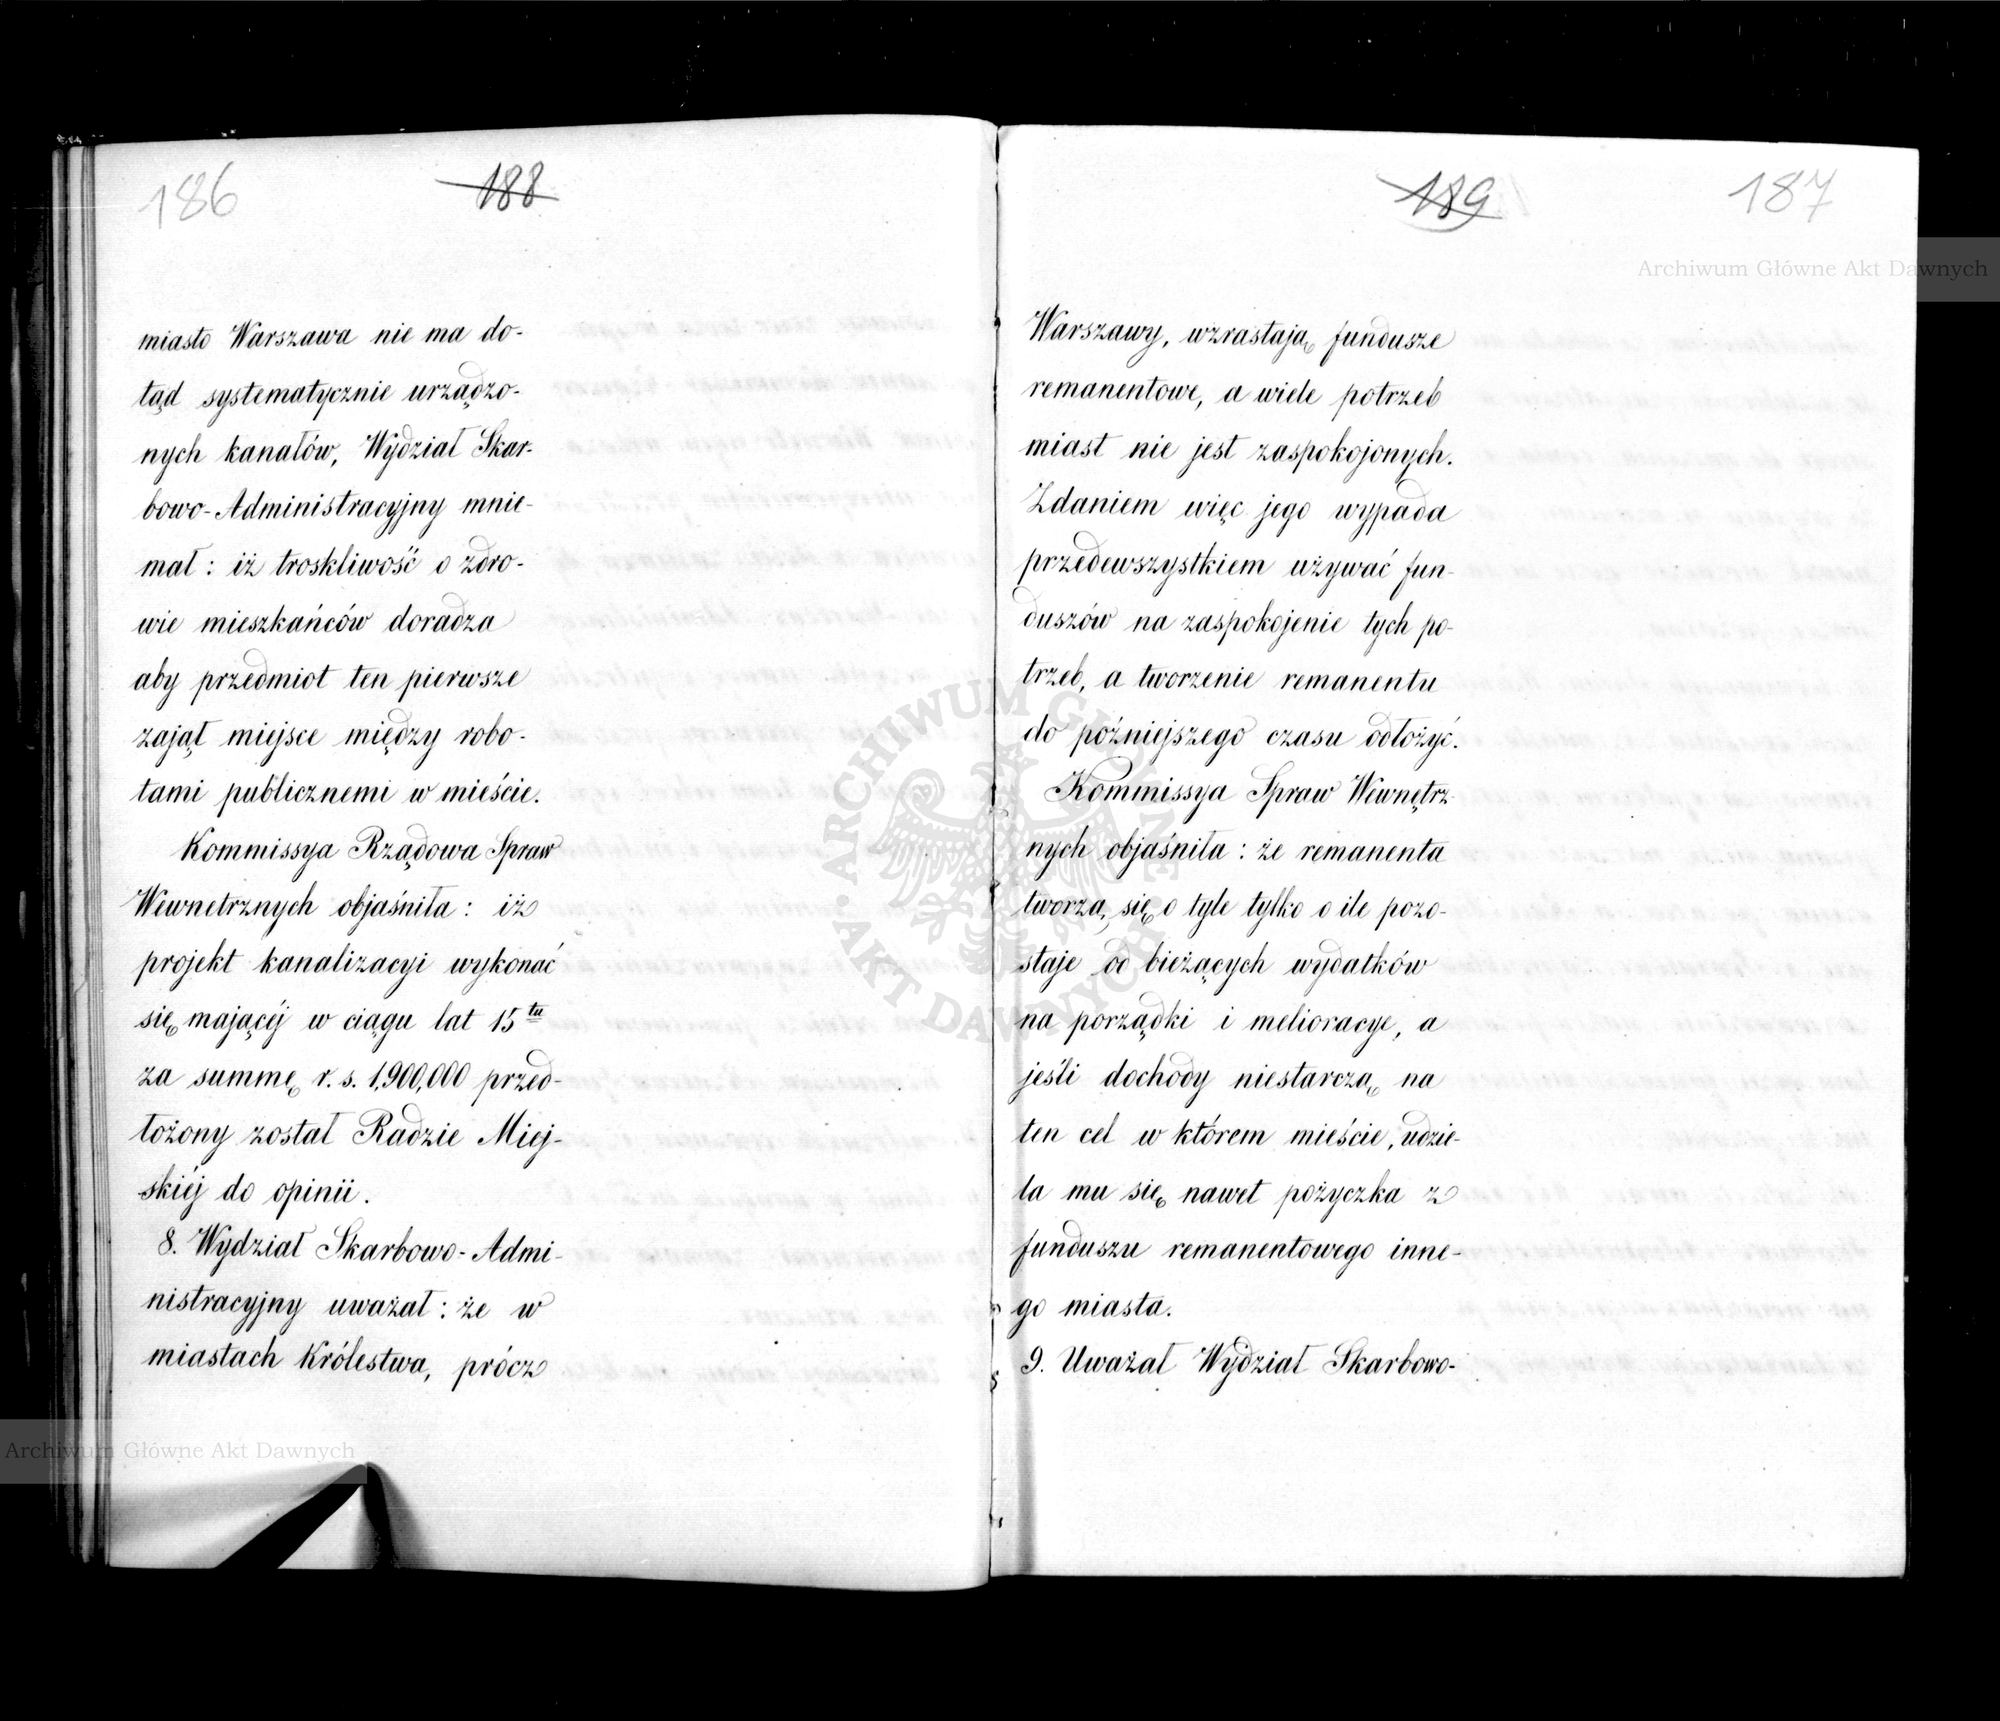 186
188
miasto Warszawa nie ma do-
tąd systematycznie urządzo-
nych kanałów, Wydział Skar-
bowo-Administracyjny mnie-
mał: iż troskliwość o zdro-
wie mieszkańców doradza
aby przedmiot ten pierwsze
zajął miejsce między robo-
tami publicznemi w mieście.
Kommissya Rządowa Spraw
Wewnetrznych objaśniła: iż
projekt kanalizacyi wykonać
się mającéj w ciągu lat 15tu
za summę r. s. 1,900,000 przed-
łożony został Radzie Miej-
skiéj do opinii.
8. Wydział Skarbowo-Admi-
nistracyjny uważał: że w
miastach Królestwa, prócz
189
187
Archiwum Główne Akt Dawnych
Warszawy, wzrastają fundusze
remanentowe, a wiele potrzeb
miast nie jest zaspokojonych.
Zdaniem więc jego wypada
przedewszystkiem używać fun-
duszów na zaspokojenie tych po-
trzeb, a tworzenie remanentu
do późniejszego czasu odłożyć.
Kommissya Spraw Wewnętrz-
nych objaśniła: że remanenta
tworzą się o tyle tylko o ile pozo-
staje od bieżących wydatków
na porządki i melioracye, a
jeśli dochody niestarczą na
ten cel w którem mieście, udzie-
la mu się nawet pożyczka z
funduszu remanentowego inne-
go miasta.
9. Uważał Wydział Skarbowo-
ARCHIWUM GŁÓWNE
AKT DAWNYCH
Archiwum Główne Akt Dawnych